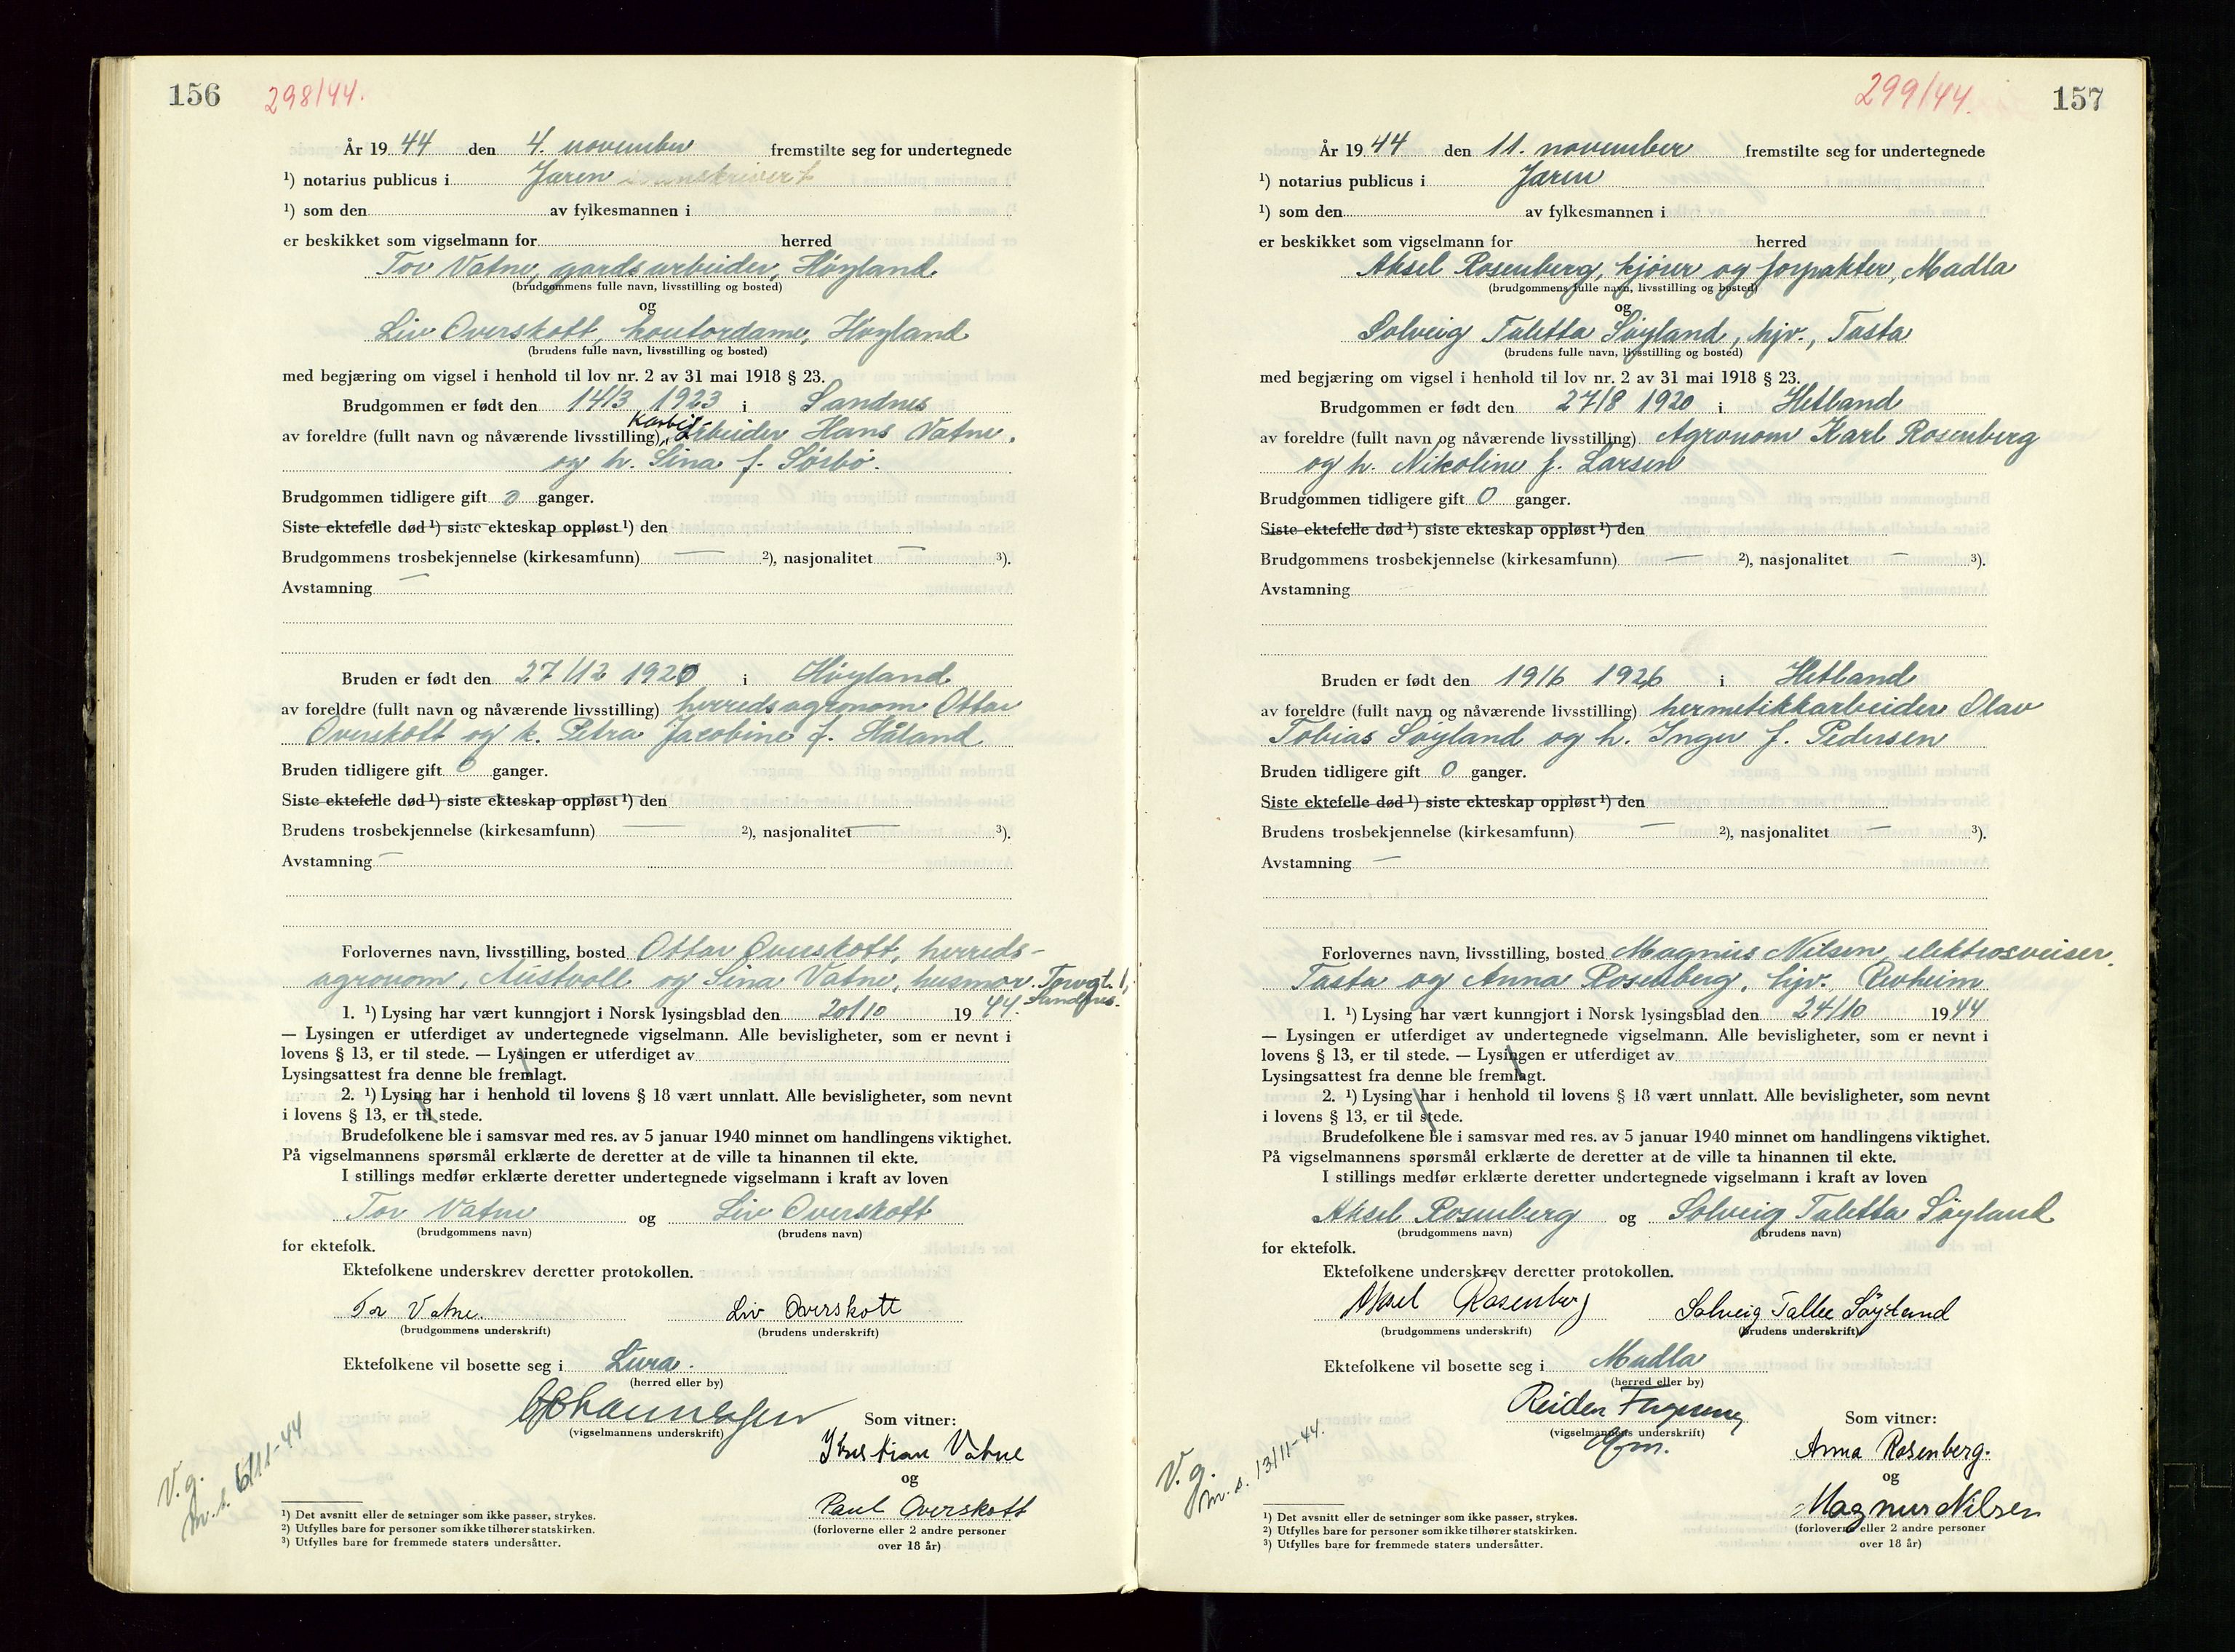 156 298/44.
År 19 44 den 4. november fremstilte seg for undertegnede
¹) notarius publicus i Jæren
¹) som den av fylkesmannen i
er beskikket som vigselmann for herred
Tor Vatne, gardsarbeider, Høyland.
(brudgommens fulle navn, livsstilling og bosted)
og
Liv Overskott, kontordame, Høyland
(brudens fulle navn, livsstilling og bosted)
med begjæring om vigsel i henhold til lov nr. 2 av 31 mai 1918 § 23.
Brudgommen er født den 14/3 1923 i Sandnes
av foreldre (fullt navn og nåværende livsstilling) arbeider Hans Vatne.
og h. Sina f. Sørbø.
Brudgommen tidligere gift 0 ganger.
Siste ektefelle død ¹) siste ekteskap oppløst ¹) den
Brudgommens trosbekjennelse (kirkesamfunn) — ²), nasjonalitet — ³).
Avstamning —
Bruden er født den 27/12 1920 i Høyland
av foreldre (fullt navn og nåværende livsstilling) herredsagronom Ottar
Overskott og h. Petra Jacobine f. Håland
Bruden tidligere gift 0 ganger.
Siste ektefelle død ¹) siste ekteskap oppløst ¹) den
Brudens trosbekjennelse (kirkesamfunn) — ²), nasjonalitet — ³).
Avstamning —
Forlovernes navn, livsstilling, bosted Ottar Overskott, herreds-
agronom, Austvoll og Sina Vatne, husmor. Torvgt. 1,
Sandnes.
1. ¹) Lysing har vært kunngjort i Norsk lysingsblad den 20/10 19 44.
— Lysingen er utferdiget av undertegnede vigselmann. Alle bevisligheter, som er nevnt i
lovens § 13, er til stede. — Lysingen er utferdiget av
Lysingsattest fra denne ble fremlagt.
2. ¹) Lysing har i henhold til lovens § 18 vært unnlatt. Alle bevisligheter, som nevnt
i lovens § 13, er til stede.
Brudefolkene ble i samsvar med res. av 5 januar 1940 minnet om handlingens viktighet.
På vigselmannens spørsmål erklærte de deretter at de ville ta hinannen til ekte.
I stillings medfør erklærte deretter undertegnede vigselmann i kraft av loven
Tor Vatne og Liv Overskott
(brudgommens navn) (brudens navn)
for ektefolk.
Ektefolkene underskrev deretter protokollen.
Tor Vatne. Liv Overskott
(brudgommens underskrift) (brudens underskrift)
Ektefolkene vil bosette seg i Lura.
(herred eller by)
(vigselmannens underskrift)
Som vitner:
Kristian Vatne
og
Paul Overskott
(forloverne eller 2 andre personer
over 18 år)
V. g.
m. s. 6/11-44
¹) Det avsnitt eller de setninger som ikke passer, strykes.
²) Utfylles bare for personer som ikke tilhører statskirken.
³) Utfylles bare for fremmede staters undersåtter.
299/44. 157
År 19 44 den 11. november fremstilte seg for undertegnede
¹) notarius publicus i Jæren
¹) som den av fylkesmannen i
er beskikket som vigselmann for herred
Aksel Rosenberg, kjører og forpakter, Madla
(brudgommens fulle navn, livsstilling og bosted)
og
Solveig Taletta Søyland, hjv., Tasta
(brudens fulle navn, livsstilling og bosted)
med begjæring om vigsel i henhold til lov nr. 2 av 31 mai 1918 § 23.
Brudgommen er født den 27/8 1920 i Hetland
av foreldre (fullt navn og nåværende livsstilling) Agronom Karl Rosenberg
og h. Nikoline f. Larsen
Brudgommen tidligere gift 0 ganger.
Siste ektefelle død ¹) siste ekteskap oppløst ¹) den
Brudgommens trosbekjennelse (kirkesamfunn) — ²), nasjonalitet — ³).
Avstamning
Bruden er født den 19/6 1926 i Hetland
av foreldre (fullt navn og nåværende livsstilling) hermetikkarbeider Olav
Tobias Søyland og h. Inger f. Pedersen
Bruden tidligere gift 0 ganger.
Siste ektefelle død ¹) siste ekteskap oppløst ¹) den
Brudens trosbekjennelse (kirkesamfunn) — ²), nasjonalitet — ³).
Avstamning —
Forlovernes navn, livsstilling, bosted Magnus Nilsen, elektrosveiser,
Tasta og Anna Rosenberg, hjv. Revheim
1. ¹) Lysing har vært kunngjort i Norsk lysingsblad den 24/10 19 44
— Lysingen er utferdiget av undertegnede vigselmann. Alle bevisligheter, som er nevnt i
lovens § 13, er til stede. — Lysingen er utferdiget av
Lysingsattest fra denne ble fremlagt.
2. ¹) Lysing har i henhold til lovens § 18 vært unnlatt. Alle bevisligheter, som nevnt
i lovens § 13, er til stede.
Brudefolkene ble i samsvar med res. av 5 januar 1940 minnet om handlingens viktighet.
På vigselmannens spørsmål erklærte de deretter at de ville ta hinannen til ekte.
I stillings medfør erklærte deretter undertegnede vigselmann i kraft av loven
Aksel Rosenberg og Solveig Taletta Søyland
(brudgommens navn) (brudens navn)
for ektefolk.
Ektefolkene underskrev deretter protokollen.
Aksel Rosenberg Solveig Søyland
(brudgommens underskrift) (brudens underskrift)
Ektefolkene vil bosette seg i Madla
(herred eller by)
(vigselmannens underskrift)
Som vitner:
Anna Rosenberg.
og
Magnus Nilsen
(forloverne eller 2 andre personer
over 18 år)
V. g.
m. s. 13/11-44.
¹) Det avsnitt eller de setninger som ikke passer, strykes.
²) Utfylles bare for personer som ikke tilhører statskirken.
³) Utfylles bare for fremmede staters undersåtter.